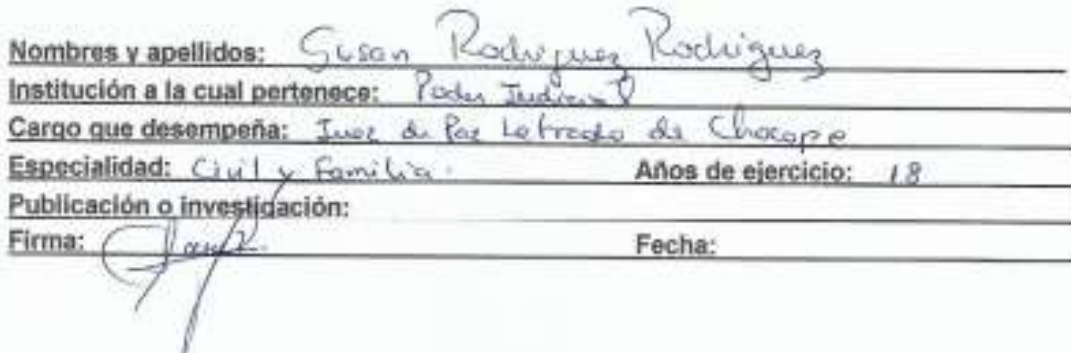 Nombres y apellidos: Susan Rodriguez Rodriguez
Institución a la cual pertenece: Poder Judicial
Cargo que desempeña: Juez de Paz Letrado de Chocope
Especialidad: Civil y Familia. Años de ejercicio: 18
Publicación o investigación:
Firma: Fecha: